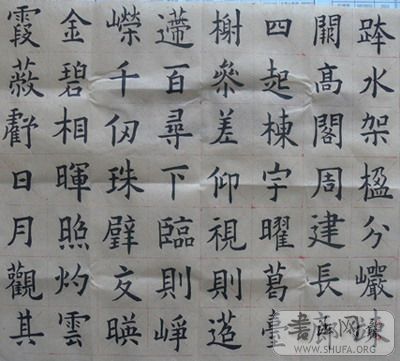 跨水架楹分巖竦
闕高閣周建長廊
四起棟宇曜葛臺
榭叅差仰視則迢
遰百尋下臨則崢
嶸千仞珠璧交暎
金碧相暉照灼雲
霞蔽虧日月觀其
书法网
WWW.SHUFA.ORG